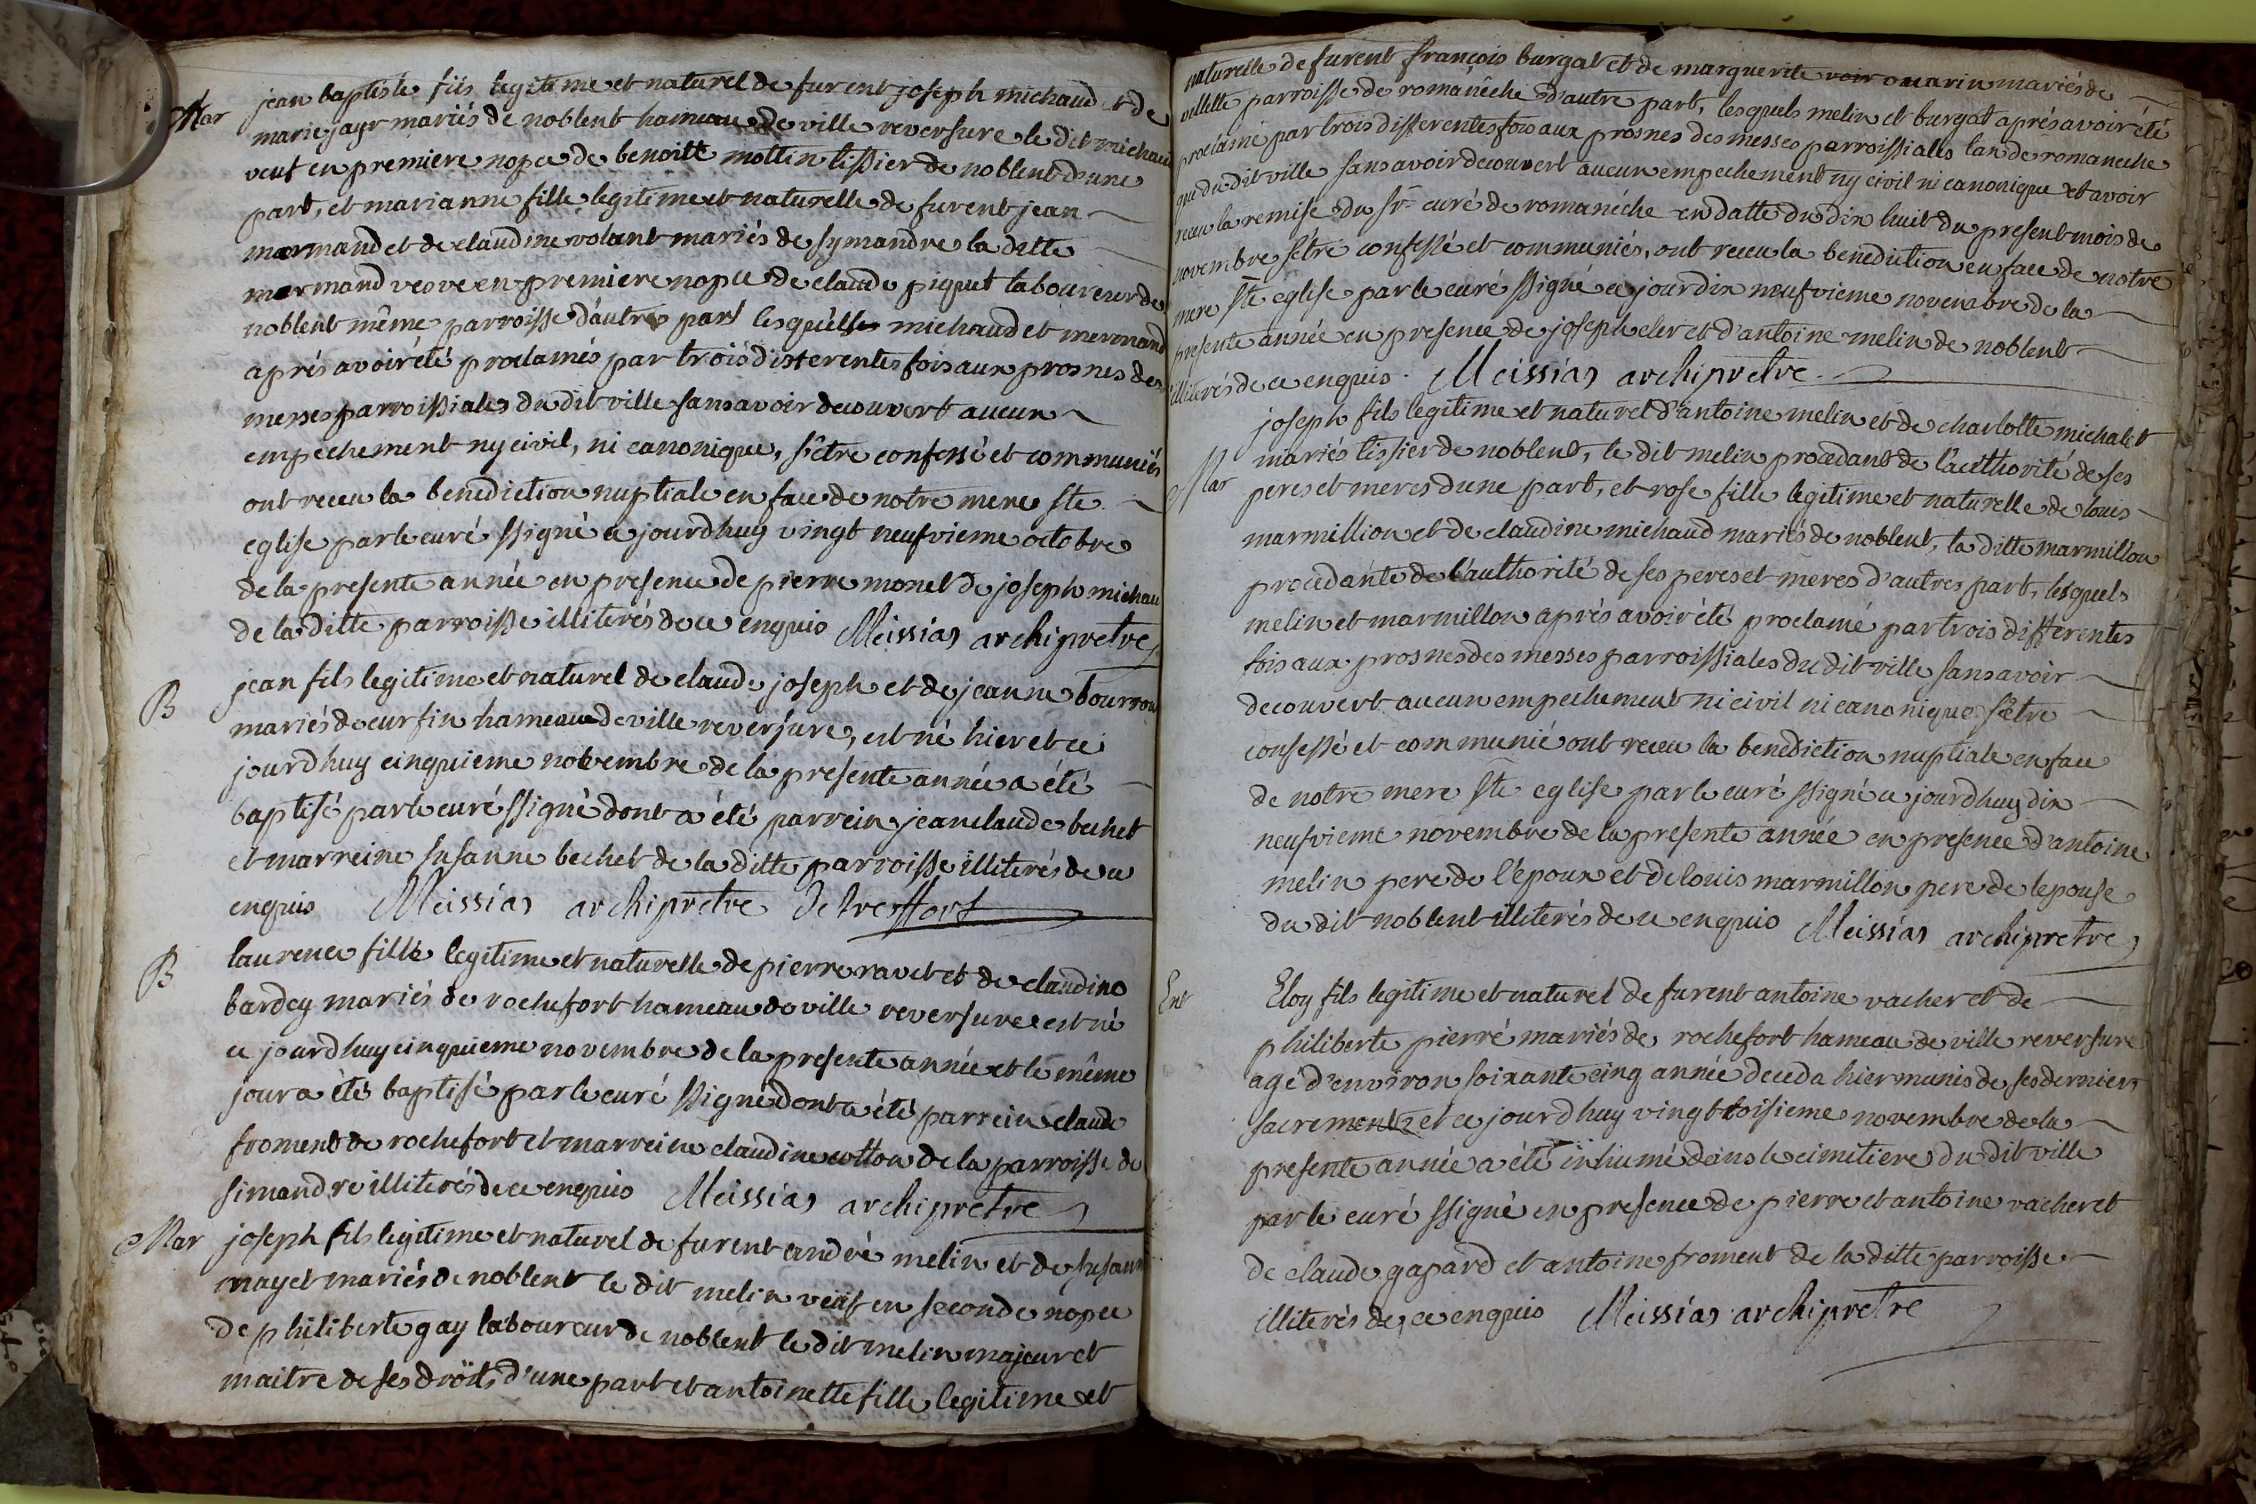 Mar jean baptiste fils legitime et naturel de furent joseph michaud et de
marie jayr mariés de noblent hameau de ville reversure le dit michaud
veuf en premiere nopce de benoitte mottin tissier de noblent d'une
part, et marianne fille legitime et naturelle de furent jean
mermand et de claudine volant mariés de symandre la ditte
mermand veove en premiere nopce de claude piquet laboureur de
noblent même parroisse d'autre part lesquells michaud et mermand
aprés avoir été proclamés par trois differentes fois aux prosnes des
messes parroissiales du dit ville sans avoir decouvert aucun
empechement ny civil, ni canonique, s'être confessé et communiés
ont receu la benediction nuptiale en face de notre mere ste
eglise par le curé ssigné ce jourdhuy vingt neufvieme octobre
de la presente année en presence de pierre monet de joseph michau
de la ditte parroisse illiterés de ce enquis Meissias archiprêtre
B jean fils legitime et naturel de claude joseph et de jeanne bourron
mariés de curfin hameau de ville reversure, est né hier et ce
jourdhuy cinquieme novembre de la presente année a été
baptisé par le curé ssigné dont a été parrein jean claude bechet
et marreine susanne bechet de la ditte parroisse illiterés de ce
enquis Meissias archiprêtre De treffort
B laurence fille legitime et naturelle de pierre ravet et de claudine
bardey mariés de rochefort hameau de ville reversure est né
ce jourdhuy cinquieme novembre de la presente année et le même
jour a été baptisé par le curé ssigné dont a été parrein claude
froment de rochefort et marreine claudine cotton de la parroisse de
simandre illiterés de ce enquis Meissias archiprêtre
Mar joseph fils legitime et naturel de furent andré melin et de susanne
mayet mariés de noblent le dit melin veuf en seconde nopce
de philiberte gay laboureur de noblent le dit melin majeur et
maitre de ses droits d'une part et antoinette fille legitime et
naturelle de furent françois burgat et de marguerite voir ouarin mariés de
villette parroisse de romanêche d'autre part, lesquels melin et burgat aprés avoir été
proclamé par trois differentes fois aux prosnes des messes parroissialles tan de romaneche
que du dit ville sans avoir decouvert aucun empechement ny civil ni canonique et avoir
receu la remise du sr curé de romanéche en datte du dix huit du present mois de
novembre s'être confessé et communiés, ont receu la benediction en face de notre
mere ste eglise par le curé ssigné ce jour dix neufvieme novembre de la
presente année en presence de joseph cler et d'antoine melin de noblent
illiterés de ce enquis. Meissias archiprêtre.
joseph fils legitime et naturel d'antoine melin et de charlotte michalet
Mar mariés tissier de noblent, le dit melin procedant de l'authorité de ses
peres et meres d'une part, et rose fille legitime et naturelle de louis
marmillion et de claudine michaud mariés de noblent, la ditte marmillon
procedante de l'authorité de ses peres et mères d'autres part, lesquels
melin et marmillon aprés avoir été proclamé par trois differentes
fois aux prosnes des messes parroissiales du dit ville sans avoir
decouvert aucun empechement ni civil ni canonique s'être
confessé et communié ont receu la benediction nuptiale en face
de notre mere ste eglise par le curé ssigné ce jourdhuy dix
neufvieme novembre de la presente année en presence d'antoine
melin pere de l'époux et de louis marmillon pere de lepouse
du dit noblent illiterés de ce enquis Meissias archiprêtre
Ent Eloy fils legitime et naturel de furent antoine vacher et de
philiberte pierré mariés de rochefort hameau de ville reversure
agé d'environ soixante cinq année deceda hier munis de ses derniers
sacrements et ce jourdhuy vingt toisieme novembre de la
presente année a été inhumé dans le cimitiere du dit ville
par le curé ssigné en presence de pierre et antoine vacher et
de claude gapard et antoine froment de la ditte parroisse
illiterés de ce enquis Meissias archiprêtre